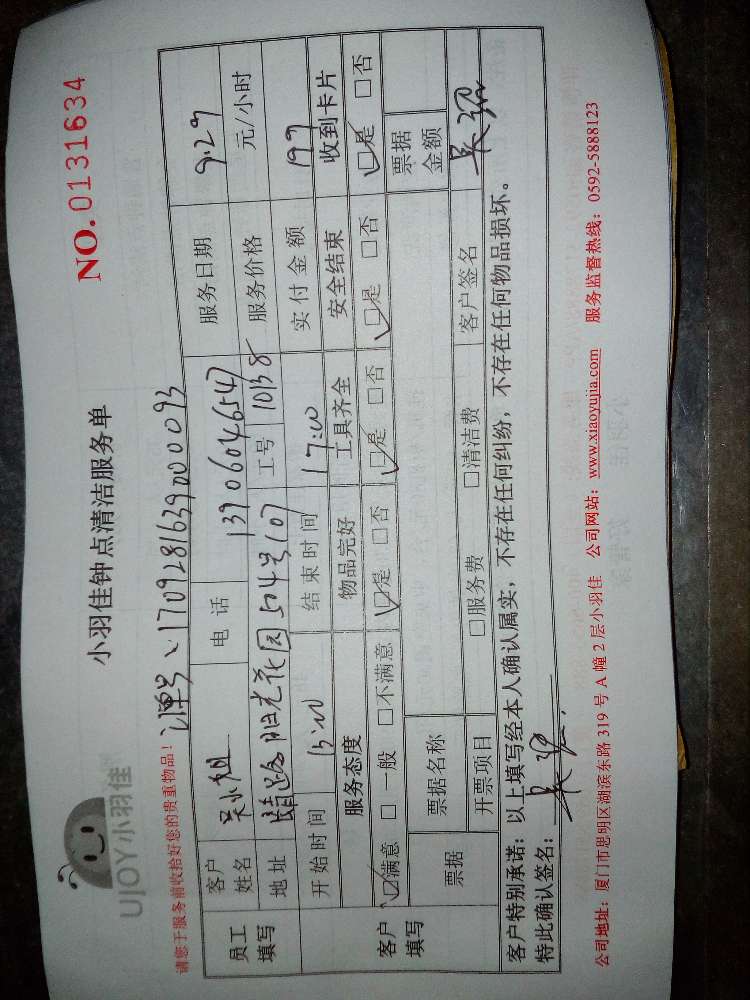 UJOY小羽佳
小羽佳钟点清洁服务单
NO.0131634
请您于服务前收拾好您的贵重物品!
订单号:170928163900093
员工填写
客户姓名 吴小姐 电话 13906046547 服务日期 9.29
地址 花园504号107 工号 10138 服务价格 元/小时
开始时间 15:00 结束时间 17:00 实付金额 199
客户填写
服务态度 物品完好 工具齐全 安全结束 收到卡片
☑满意 □一般 □不满意 ☑是 □否 ☑是 □否 ☑是 □否 ☑是 □否
票据 票据名称 票据金额
开票项目 □服务费 □清洁费 客户签名 吴
客户特别承诺:以上填写经本人确认属实,不存在任何纠纷,不存在任何物品损坏。
特此确认签名: 吴
公司地址:厦门市思明区湖滨东路 319 号 A 幢 2 层小羽佳 公司网站:www.xiaoyujia.com 服务监督热线:0592-5888123